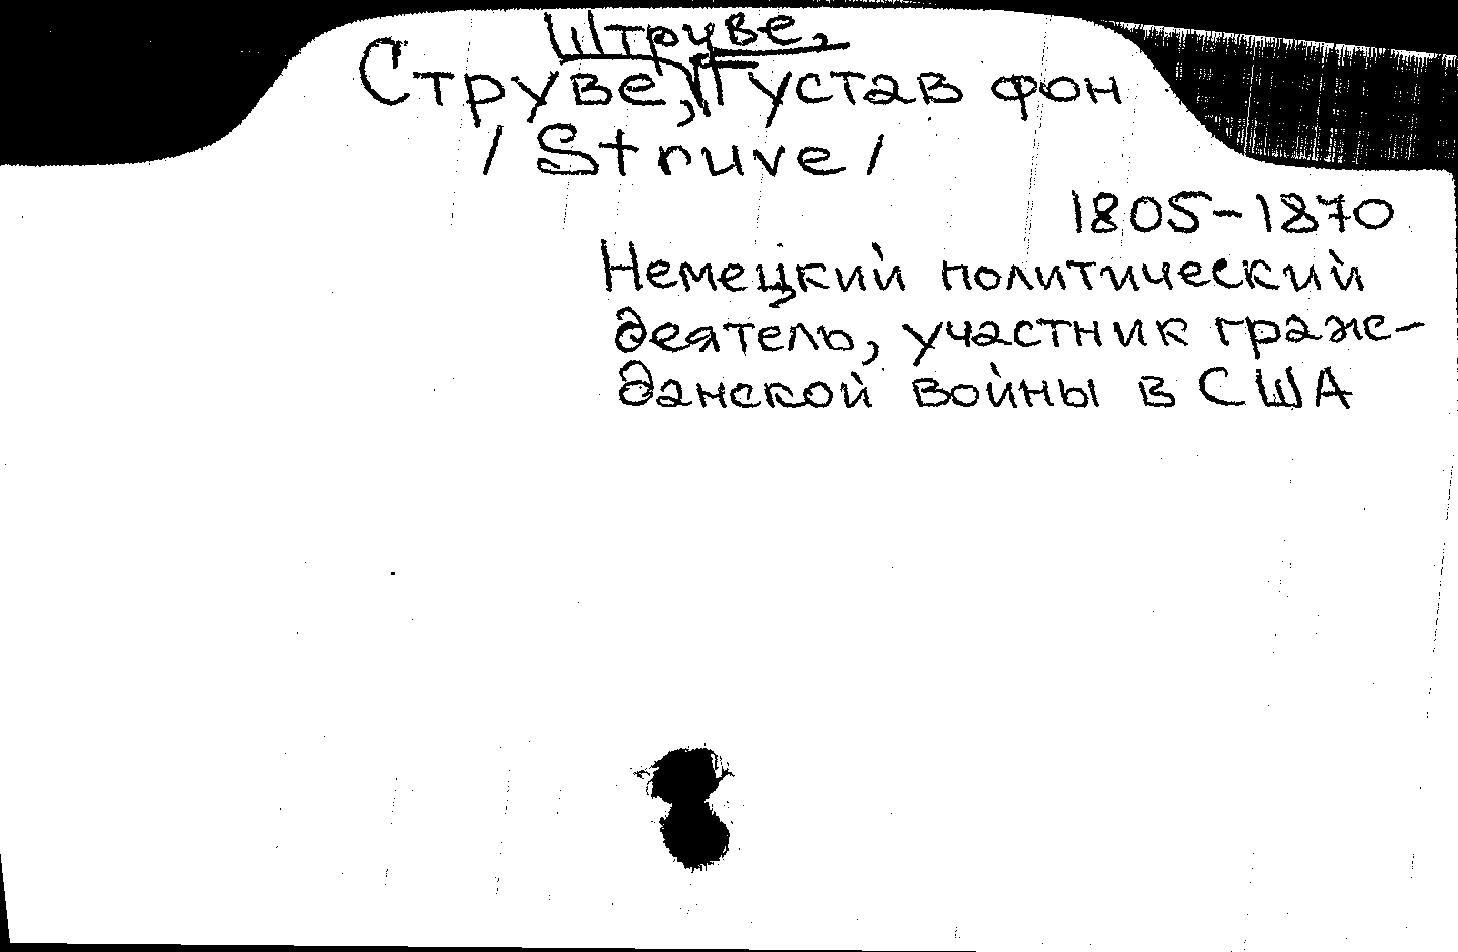 Штруве,
Струве, Густав фон
/Struve/
1805-1870
Немецкий политический
деятель, участник граж-
данской войны в США